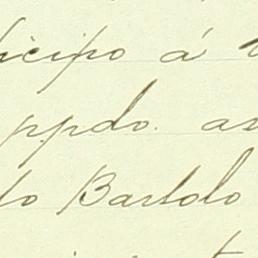 icipo á
ppdo. a
to Bartolo